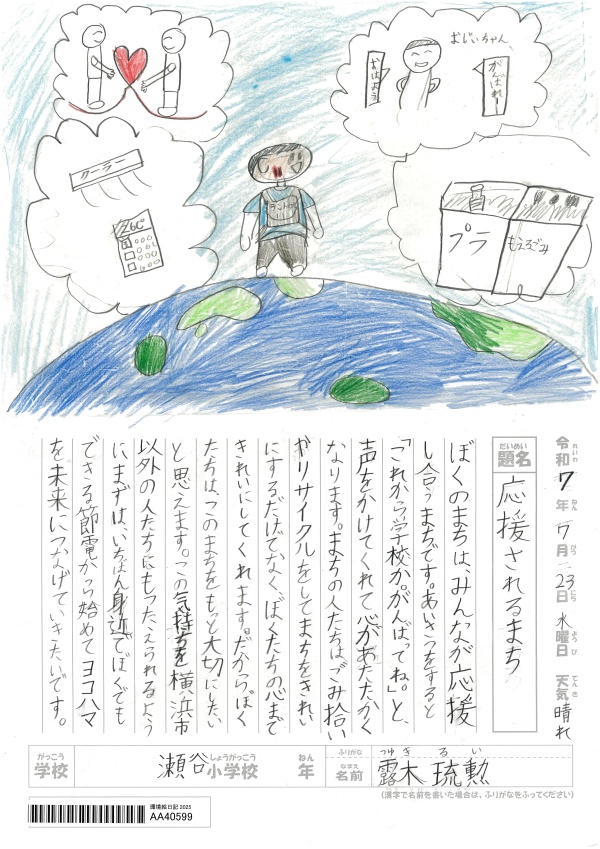 おじいちゃん、
おはよう
がんばれー
クーラー
26℃
プラ
もえるごみ
令和7年7月23日水曜日 天気 晴れ
れいわ ねん がつ にち ようび てんき
だいめい
題名 応援されるまち
ぼくのまちは、みんなが応援
し合うまちです。あいさつをすると
「これから学校か。がんばってね。」と、
声をかけてくれて心があたたかく
なります。まちの人たちはごみ拾い
やリサイクルをしてまちをきれい
にするだけでなく、ぼくたちの心まで
きれいにしてくれます。だからぼく
たちは、このまちをもっと大切にしたい
と思えます。この気持ちを横浜市
以外の人たちにもつたえられるよう
にまずは、いちばん身近でぼくでも
できる節電から始めてヨコハマ
を未来につなげていきたいです。
がっこう しょうがっこう ねん ふりがな つゆき るい
学校 瀬谷小学校 年 なまえ 名前 露木 琉勲
(漢字で名前を書いた場合は、ふりがなをふってください)
環境絵日記 2025
AA40599